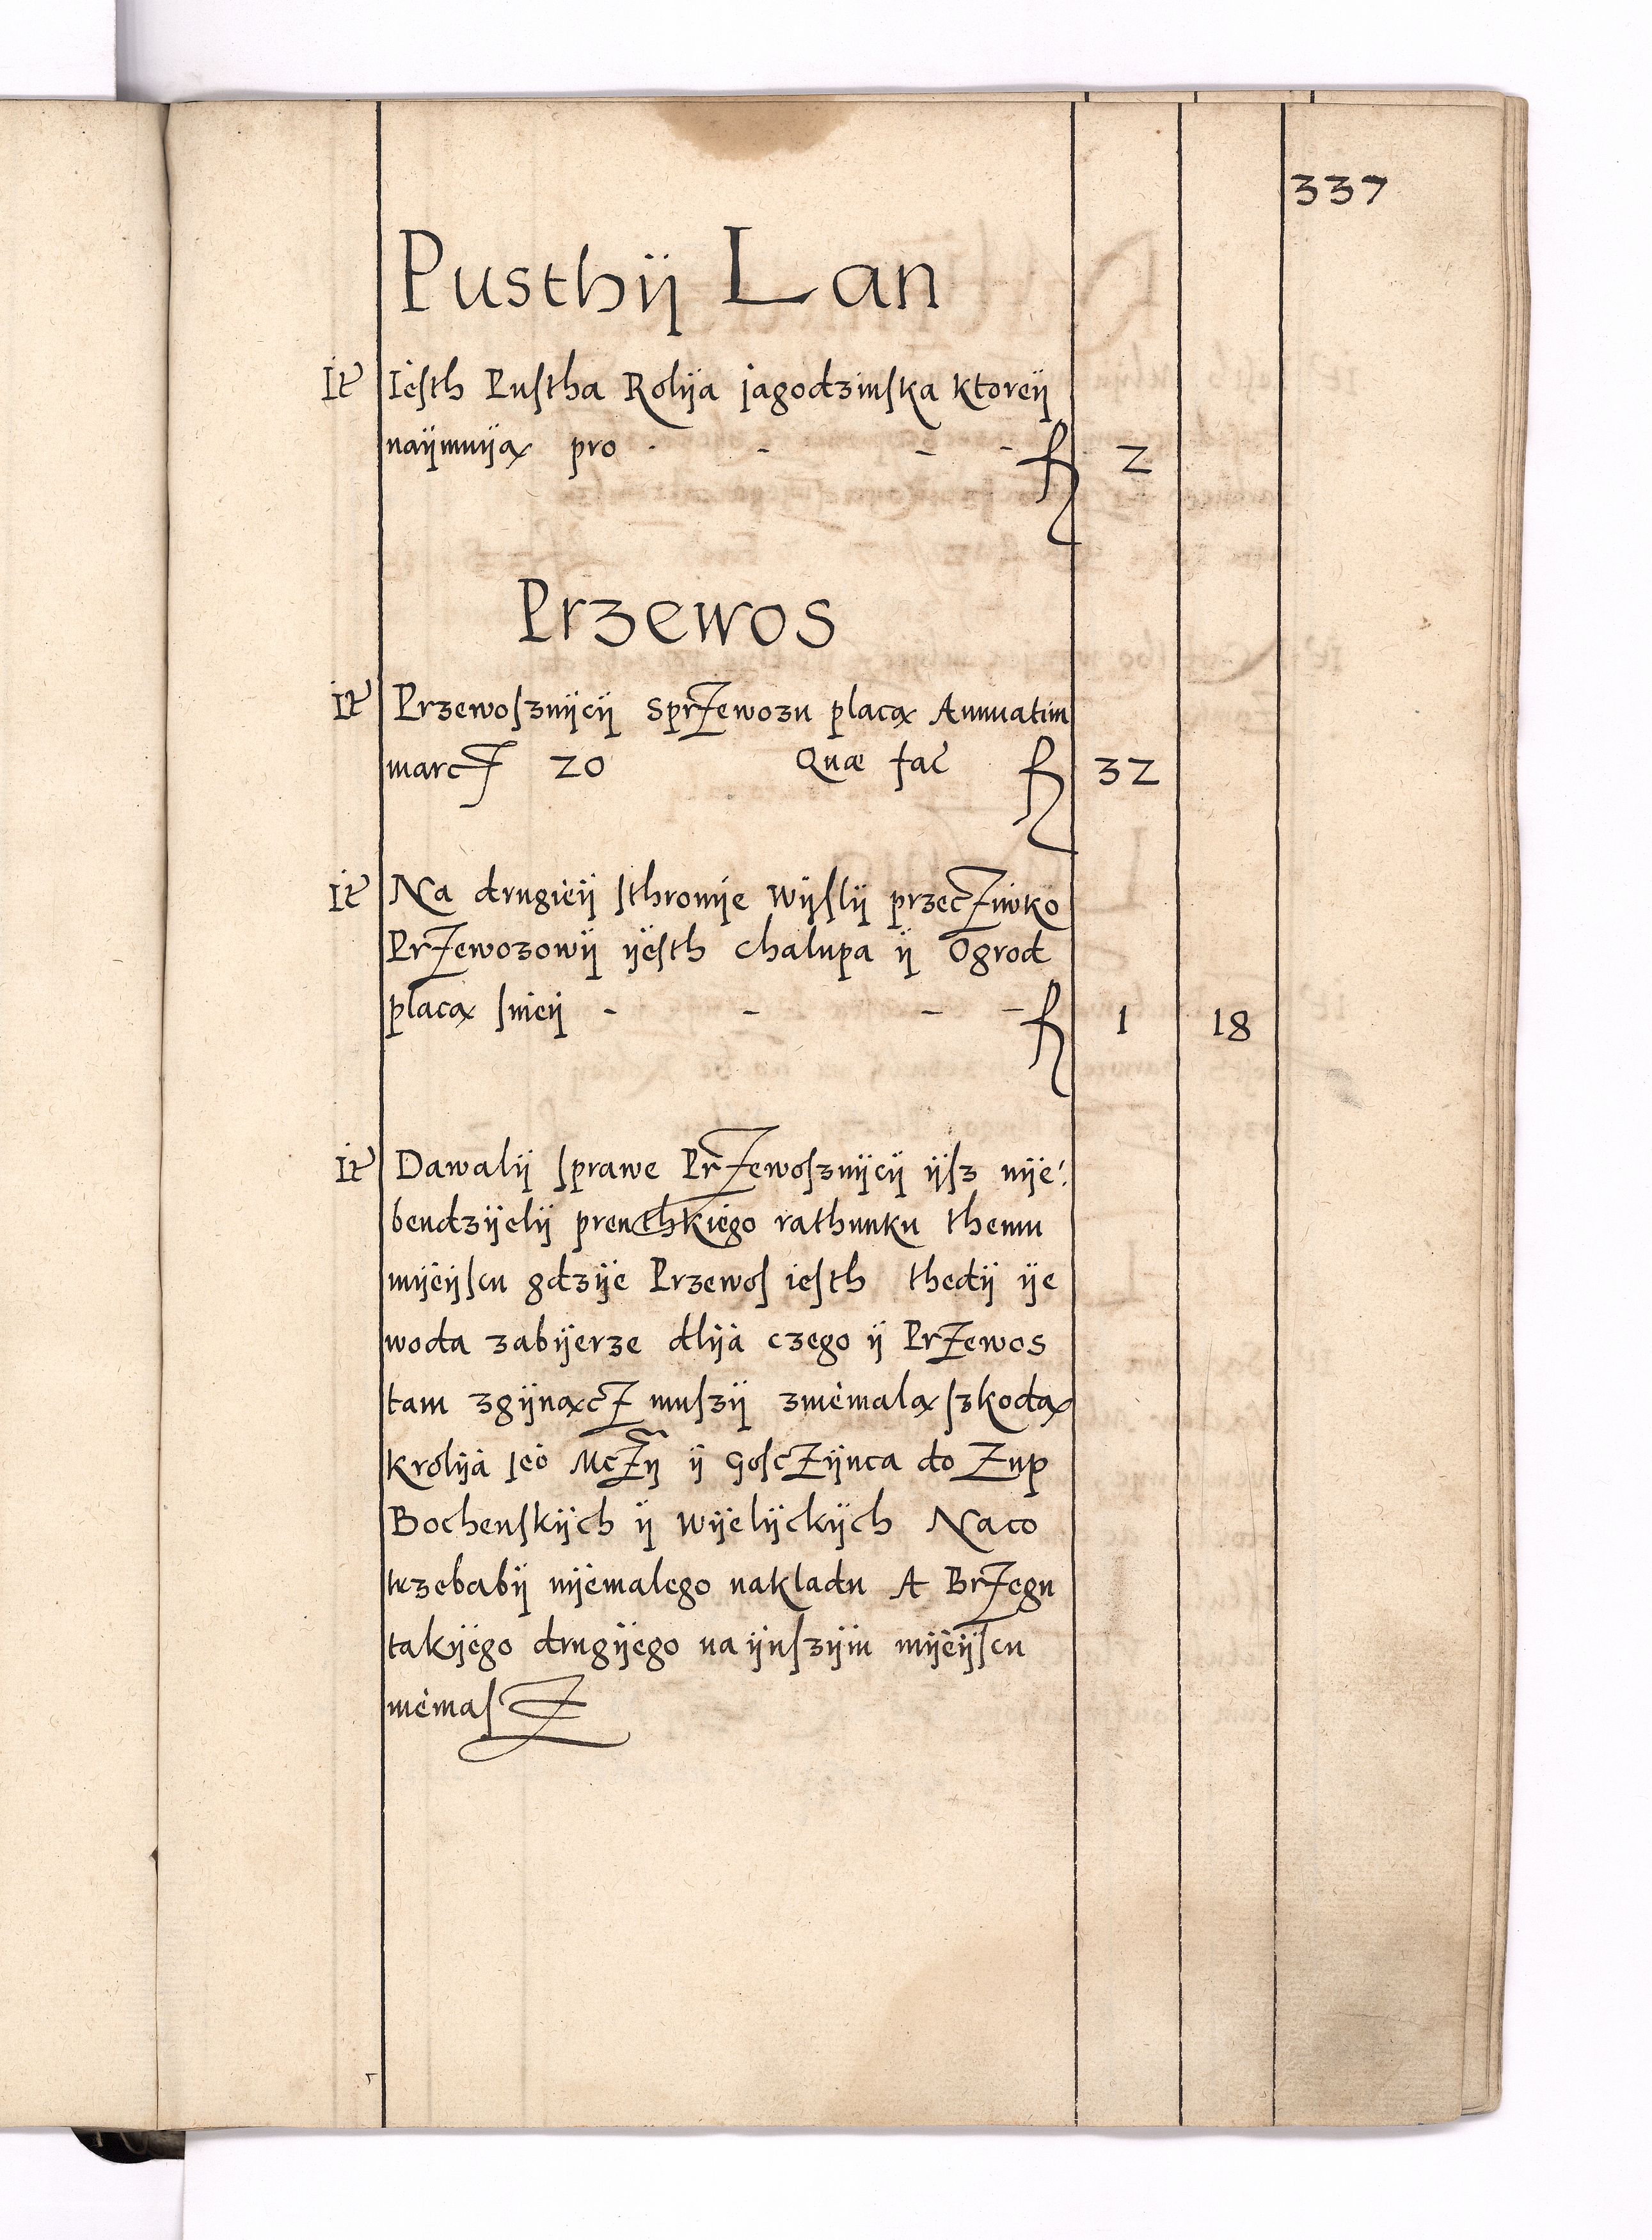 337
Pusthÿ Lan
It Iesth Pustha Rolÿa jagodzinska ktoreÿ
naÿmuÿą pro - - - - f 2
Przewos
It Przewosznÿcÿ sprzewozu placą Annuatim
marcz 20 Quæ fac f 32
It Na drugieÿ sthronÿe wÿslÿ przeczÿwko
Przewozowÿ ÿesth chalupa ÿ Ogrod
placą snieÿ - - - - f 1 18
It Dawalÿ sprawe Przewosznÿcÿ ÿsz nÿe
bendzÿelÿ prenthkiego rathunku themu
mÿeÿscu gdzÿe Przewos iesth thedÿ ÿe
woda zabÿerze dlÿa czego ÿ Przewos
tam zgÿnącz muszÿ zniemalą szkodą
krolÿa Jeo Mczÿ ÿ Gosczÿnca do Zup
Bochenskÿch ÿ Wÿelÿckÿch Naco
trzebabÿ nÿemalego nakladu A Brzegu
takÿego drugÿego na ÿnszÿm mÿeÿscu
niemasz